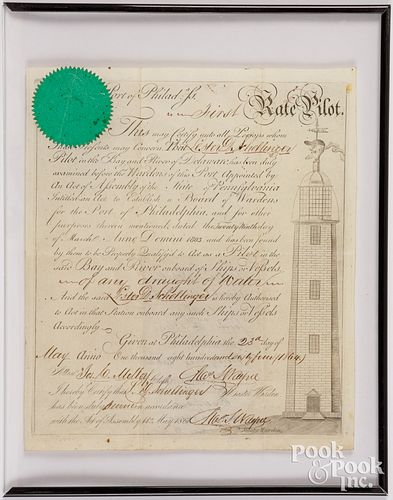 Port of Philad. Ss.
First Rate Pilot.
This may Certify unto all Persons whom
These Presents may Concern That Lester D. Schellinger
Pilot in the Bay and River of Delaware has been duly
examined before the Wardens of this Port Appointed by
An Act of Assembly of the State of Pennsylvania
Intitled an Act to Establish a Board of Wardens
for the Port of Philadelphia, and for other
purposes therein mentioned, dated the Twenty Ninth day
of March Anno Domini 1803 and has been found
by them to be Properly Qualified to Act as a Pilot in the
said Bay and River onboard of Ships or Vessels
of any draught of Water
And the said Lester D. Schellinger is hereby Authorised
to Act in that Station onboard any such Ships or Vessels
Accordingly.
Given at Philadelphia the 23rd day of
May Anno One thousand eight hundred and sixty four (1864)
Clerk
I hereby Certify that Schellinger
Master Warden
has been duly in accordance
with the Act of Assembly May
Master Warden
POOK
& POOK
Inc.